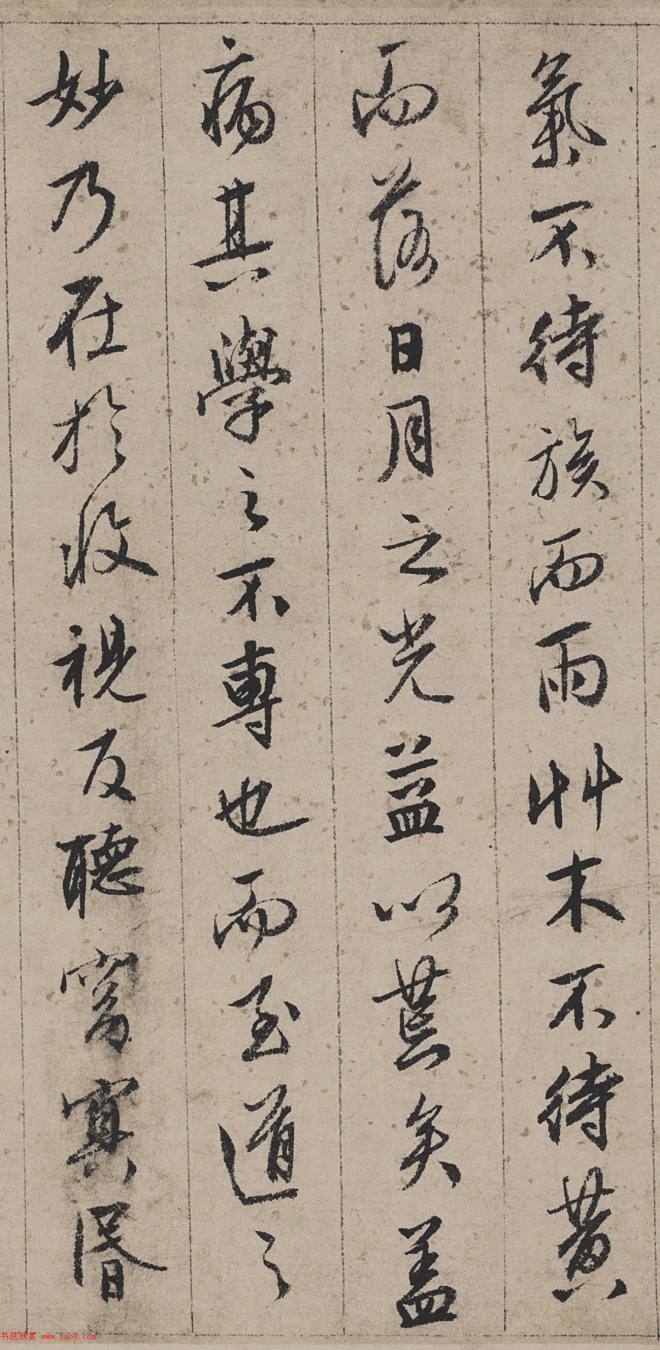 氣不待族而雨艸木不待黄
而落日月之光益以荒矣蓋
病其學之不專也而至道之
妙乃在於收視反聽窈冥昬
书法欣赏 www.yac8.com